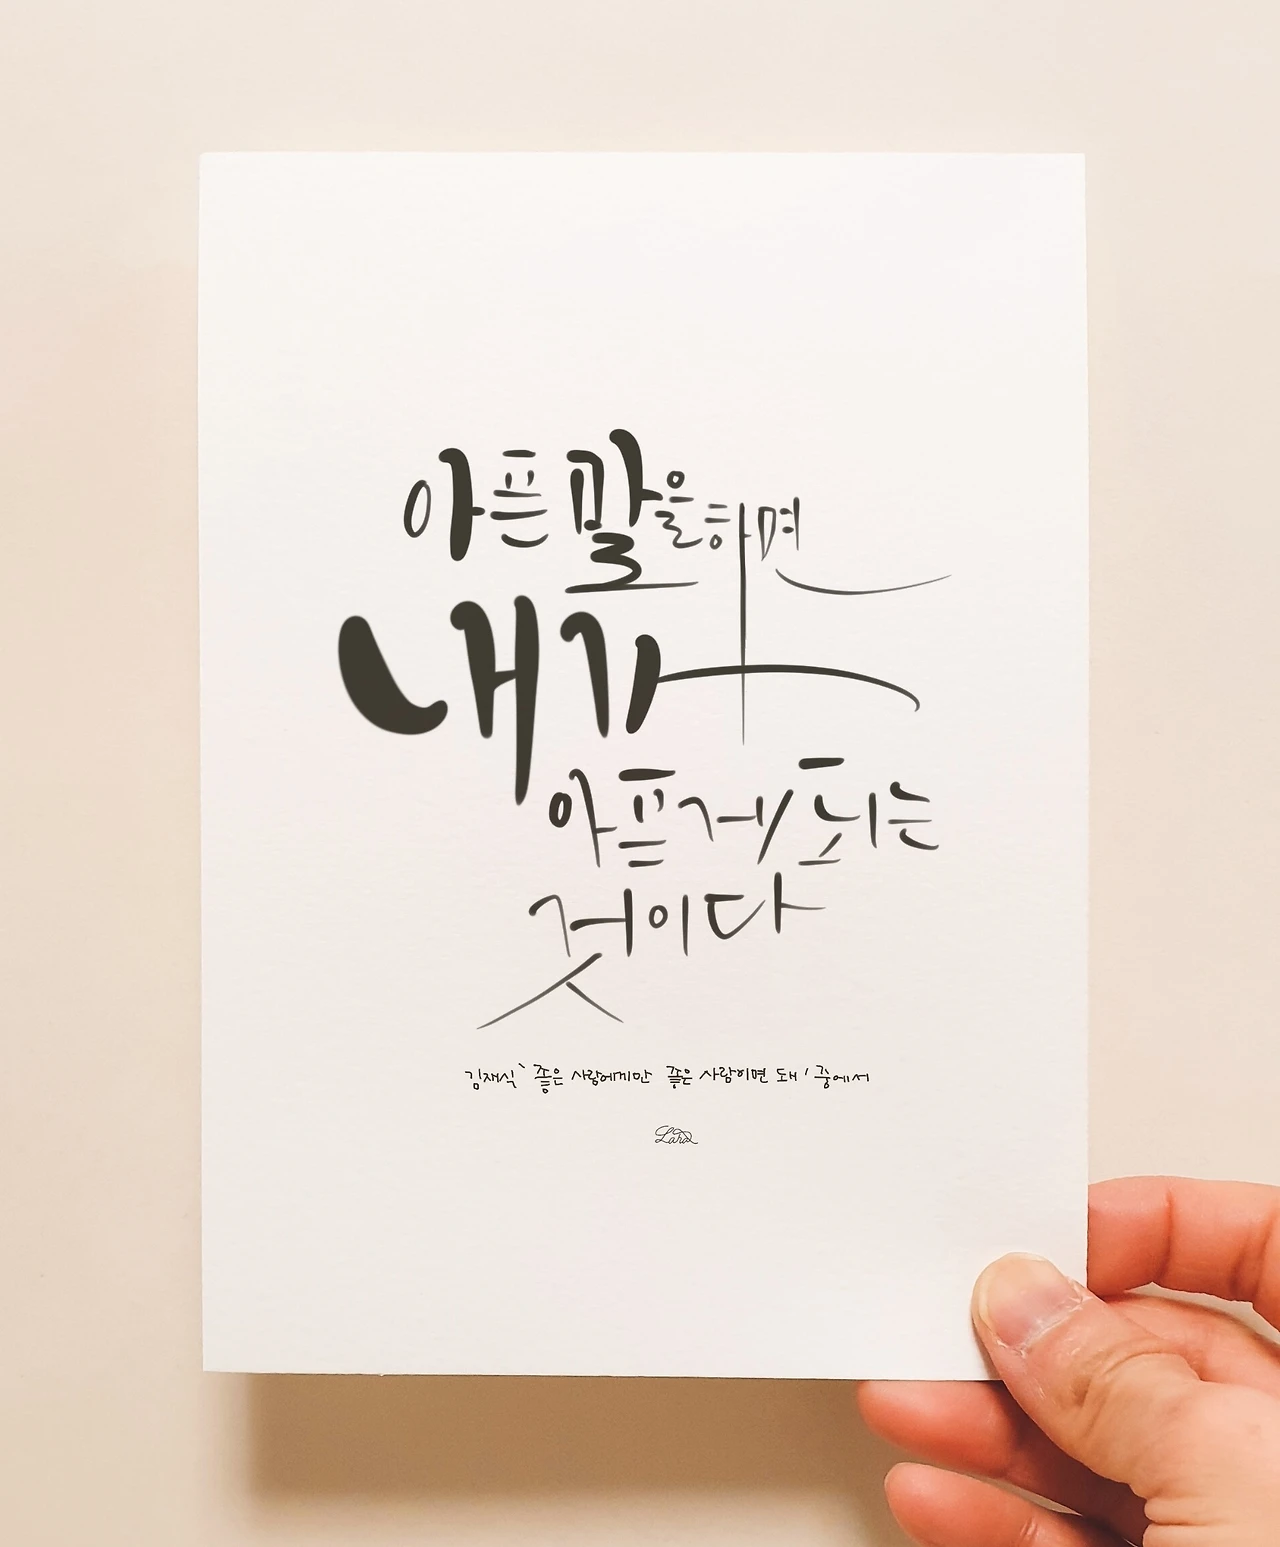 아픈 말을 하면
내가
아프게 되는
것이다
김재식 '좋은 사람에게만 좋은 사람이면 돼' 중에서
Lara